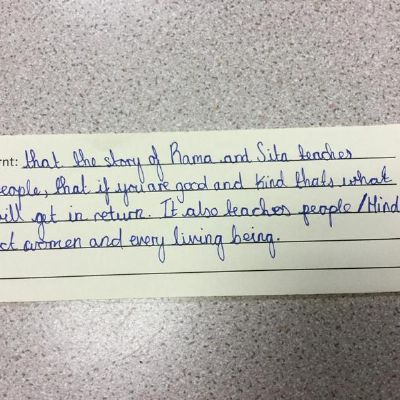 rnt: that the story of Rama and Sita teaches
eople, that if you are good and kind thats what
ill get in return. It also teaches people / Hind
ct women and every living being.